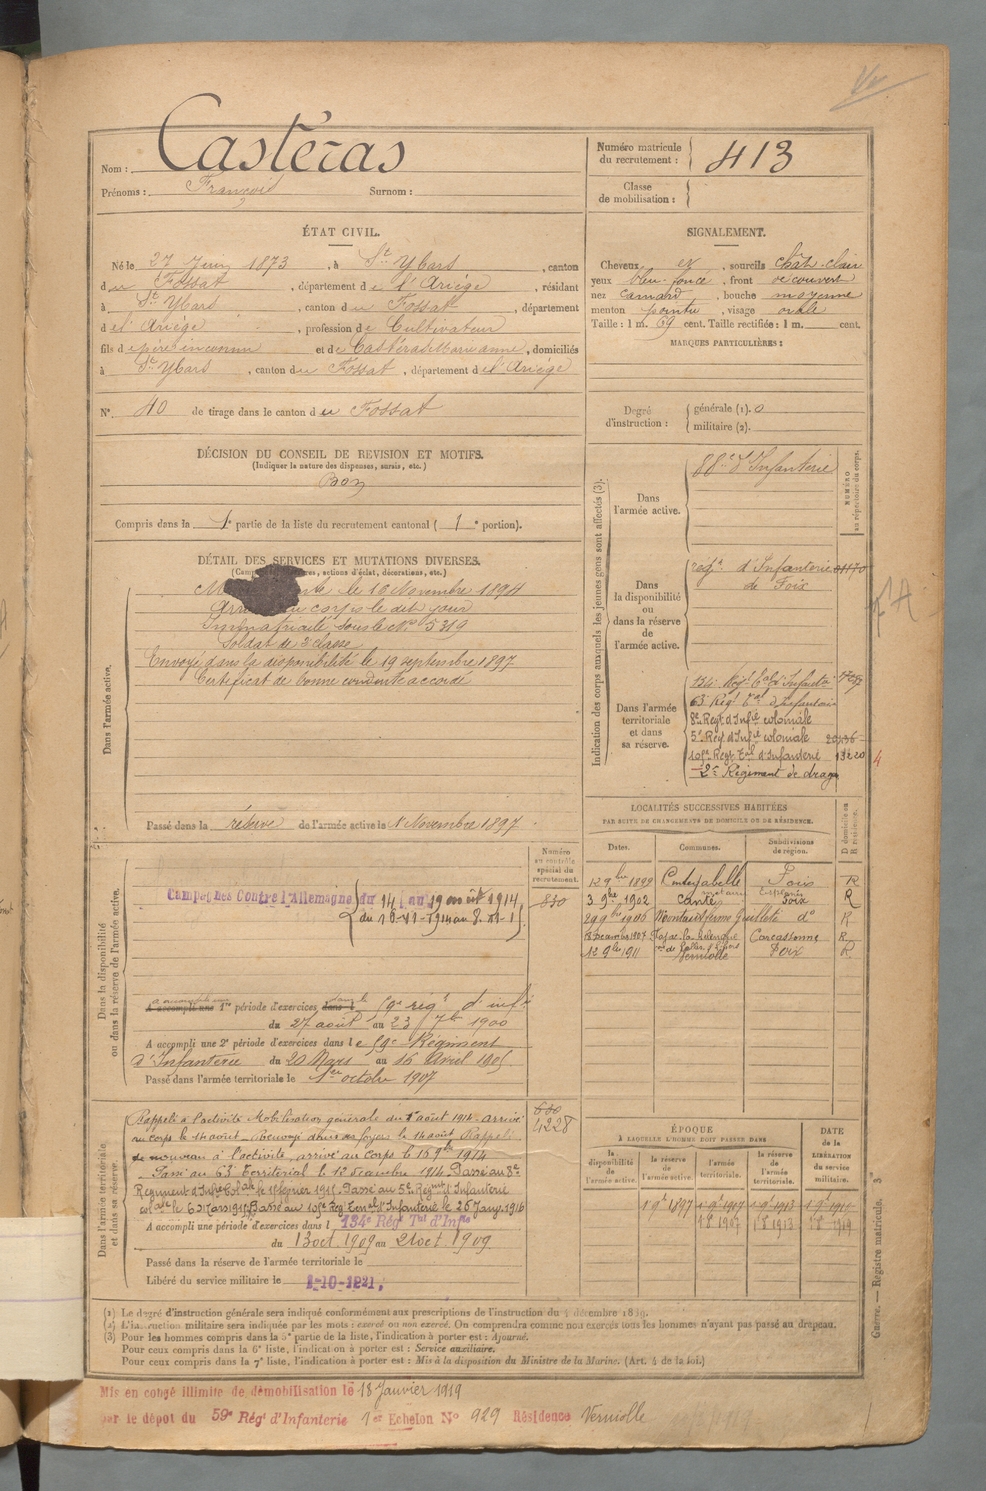 Nom : Castéras
Prénoms : François Surnom :
Numéro matricule du recrutement : 413
Classe de mobilisation :
ÉTAT CIVIL.
Né le 27 Juin 1873, à St Ybars, canton
du Fossat, département de l'Ariège, résidant
à St Ybars, canton du Fossat, département
de l'Ariège, profession de Cultivateur
fils de père inconnu et de Castéras Marie anne, domiciliés
à St Ybars, canton du Fossat, département de l'Ariège
N° 40 de tirage dans le canton du Fossat
SIGNALEMENT.
Cheveux et, sourcils chât-clair
yeux bleu-foncé, front découvert
nez camard, bouche moyenne
menton pointu, visage ovale
Taille : 1 m. 69 cent. Taille rectifiée : 1 m. cent.
MARQUES PARTICULIÈRES :
Degré d'instruction :
générale (1). 0
militaire (2).
DÉCISION DU CONSEIL DE REVISION ET MOTIFS.
(Indiquer la nature des dispenses, sursis, etc.)
Bon
Compris dans la 1e partie de la liste du recrutement cantonal ( 1e portion).
DÉTAIL DES SERVICES ET MUTATIONS DIVERSES.
actions d'éclat, décorations, etc.)
Dans l'armée active.
le 16 Novembre 1894
au corps le dit jour
Immatriculé sous le N° 5319
Soldat de 2e classe
Envoyé dans la disponibilité le 19 septembre 1897
Certificat de bonne conduite accordé
Passé dans la réserve de l'armée active le 1 Novembre 1897
Indication des corps auxquels les jeunes gens sont affectés (3).
NUMÉRO au répertoire du corps.
Dans l'armée active.
88e d'Infanterie
Dans la disponibilité ou dans la réserve de l'armée active.
regt d'Infanterie
de Foix
Dans l'armée territoriale et dans sa réserve.
134e Régt tal d'Infanterie
63 Régt tal d'Infanterie
8e Regt d'Infie coloniale
5e Reg. d'Infie coloniale
Regt Tal d'Infanterie 13220
2e Régiment de drag
4
LOCALITÉS SUCCESSIVES HABITÉES
PAR SUITE DE CHANGEMENTS DE DOMICILE OU DE RÉSIDENCE.
D domicile ou R résidence.
Dates. Communes. Subdivisions de région.
12 9bre 1899 Canteyabelle Foix R
3 9bre 1902 Canté Foix R
29 9bre 1906 d° R
1907 Carcassonne R
12 9bre 1911 Verniolle Foix R
Dans la disponibilité ou dans la réserve de l'armée active.
Numéro au contrôle spécial du recrutement.
830
Campagnes Contre l'Allemagne du 14 au 19 août 1914
du 16-11-1914 au
A accompli une 1re période d'exercices dans le 59e regt d'infie
du 27 août au 23 7bre 1900
A accompli une 2e période d'exercices dans le 59e Régiment
d'Infanterie du 20 Mars au 16 Avril 1905
Passé dans l'armée territoriale le 1er octobre 1907
Dans l'armée territoriale et dans sa réserve.
630
4228
Rappelé à l'activité Mobilisation générale du 1er août 1914. arrivé
au corps le 14 août. Renvoyé dans ses foyers le 14 août. Rappelé
de nouveau à l'activité arrivé au corps le 16 9bre 1914
Passé au 63e Territorial le 12 décembre 1914. Passé au 8e
Régiment d'Infie Colale le 1er février 1915. Passé au 5e Régment d'Infanterie
colale le 6 Mars 1915. Passé au Régt Terral d'Infanterie le 26 Janv. 1916
A accompli une période d'exercices dans l 134e Régt Tal d'Infie
du 13 oct 1909 au 21 oct 1909
Passé dans la réserve de l'armée territoriale le
Libéré du service militaire le 1-10-1921,
ÉPOQUE
À LAQUELLE L'HOMME DOIT PASSER DANS
la disponibilité de l'armée active. la réserve de l'armée active. l'armée territoriale. la réserve de l'armée territoriale.
DATE de la LIBÉRATION du service militaire.
1 9bre 1897 1 9bre 1907 1 9bre 1913 1 9bre 1919
1 8bre 1907 1 8bre 1913 1 8bre 1919
(1) Le degré d'instruction générale sera indiqué conformément aux prescriptions de l'instruction du 4 décembre 1889.
(2) L'instruction militaire sera indiquée par les mots : exercé ou non exercé. On comprendra comme non exercés tous les hommes n'ayant pas passé au drapeau.
(3) Pour les hommes compris dans la 5e partie de la liste, l'indication à porter est : Ajourné.
Pour ceux compris dans la 6e liste, l'indication à porter est : Service auxiliaire.
Pour ceux compris dans la 7e liste, l'indication à porter est : Mis à la disposition du Ministre de la Marine. (Art. 4 de la loi.)
Guerre. — Registre matricule. 3
Mis en congé illimité de démobilisation le 18 Janvier 1919
par le dépot du 59e Régt d'Infanterie 1er Echelon N° 929 Résidence Verniolle